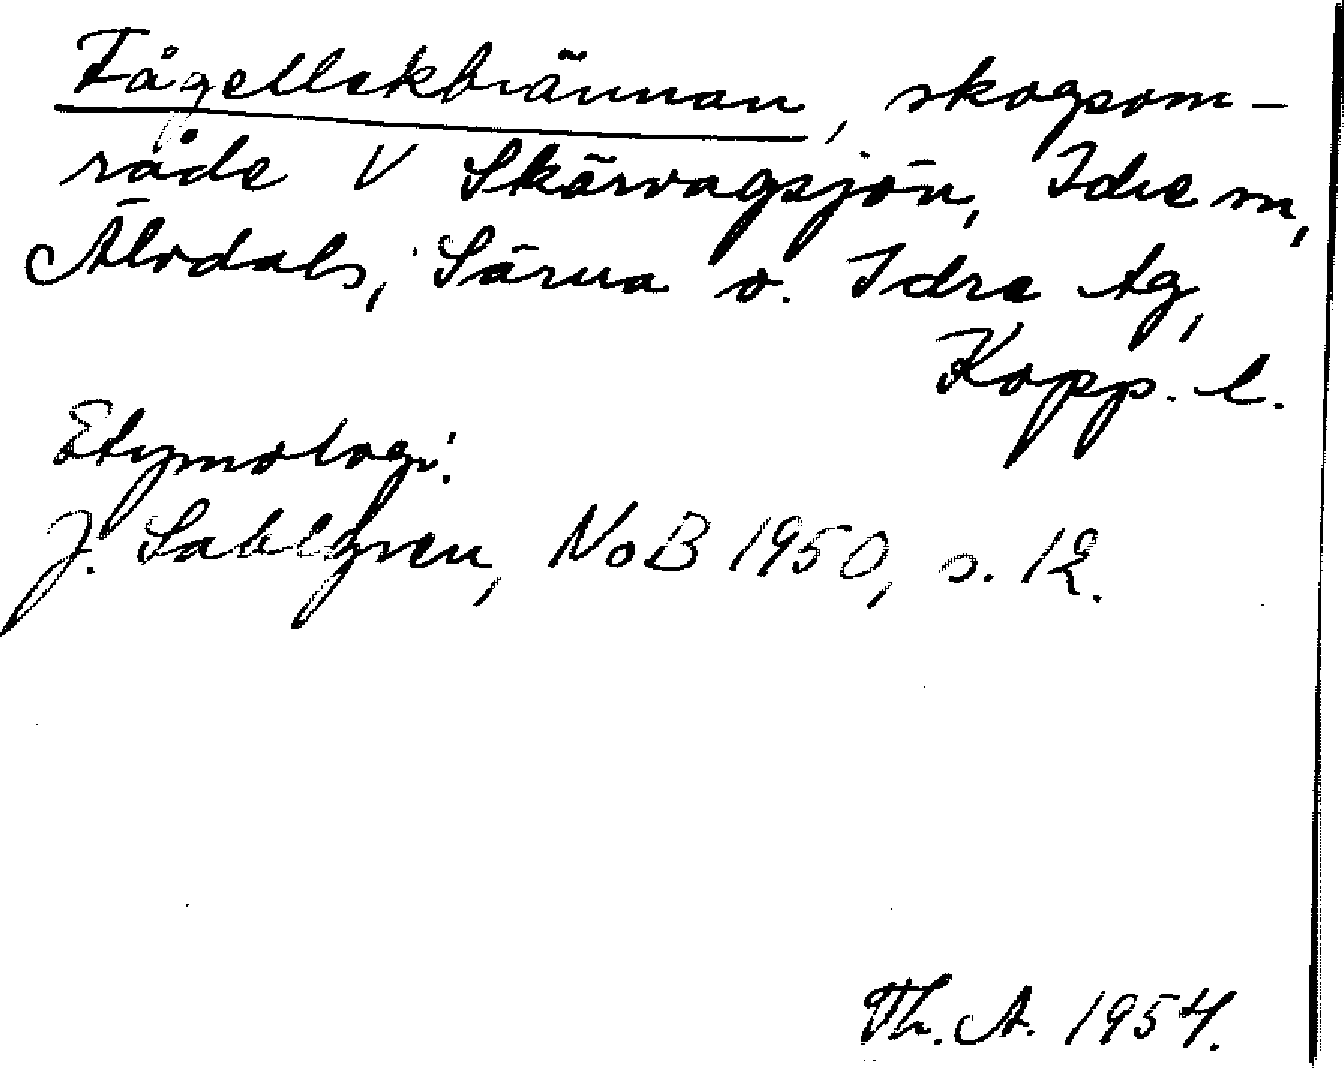 Fågellekbrännan, skogsom-
råde V Skärvagsjön, Idre sn,
Älvdals, Särna o. Idre tg,
Kopp. l.
Etymologi:
J. Sahlgren, NoB 1950, s. 12.
Th. A. 1954.